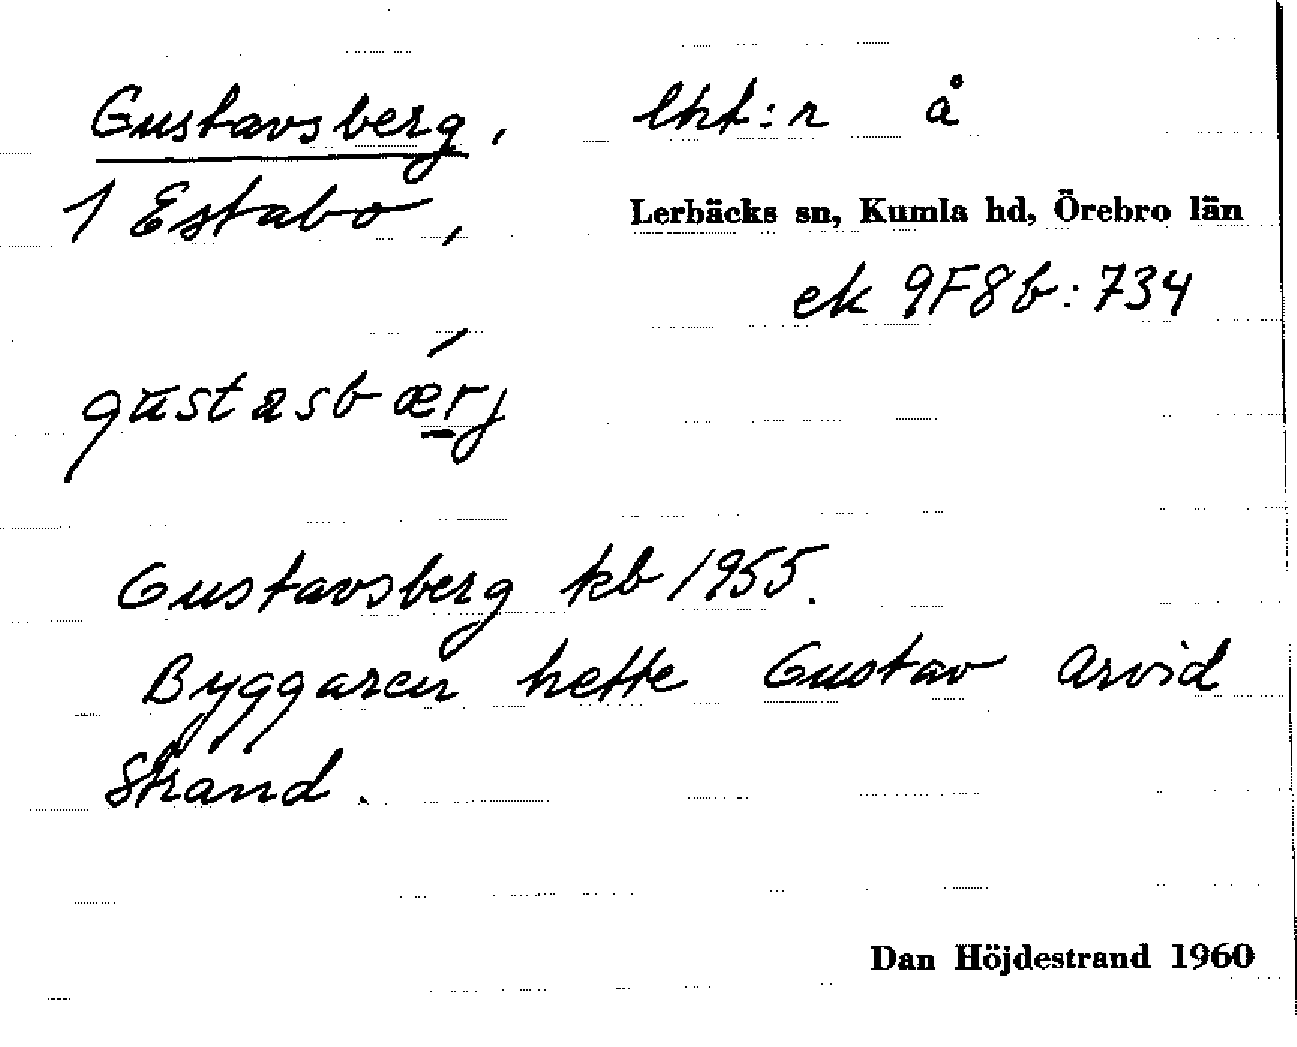 Gustavsberg, lht:r å
1 Estabo, Lerbäcks sn, Kumla hd, Örebro län
ek 9F8b:734
gustasbærj
Gustavsberg kb 1955.
Byggaren hette Gustav Arvid
Strand.
Dan Höjdestrand 1960